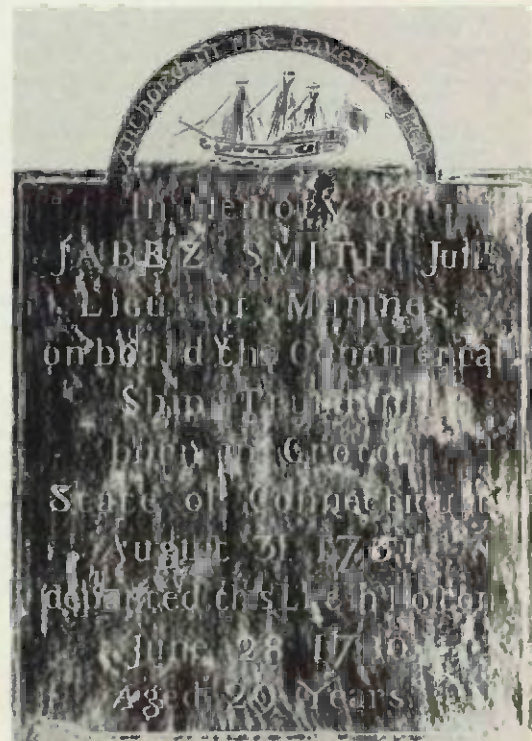 Anchored in the haven of
In Memory of
JABEZ SMITH Junr
Lieut of Marines
on board the Continental
Ship Trumbull
born in Groton
State of Connecticutt
August 31 1751
departed this Life in Boston
June 28 1780
Aged 20 Years